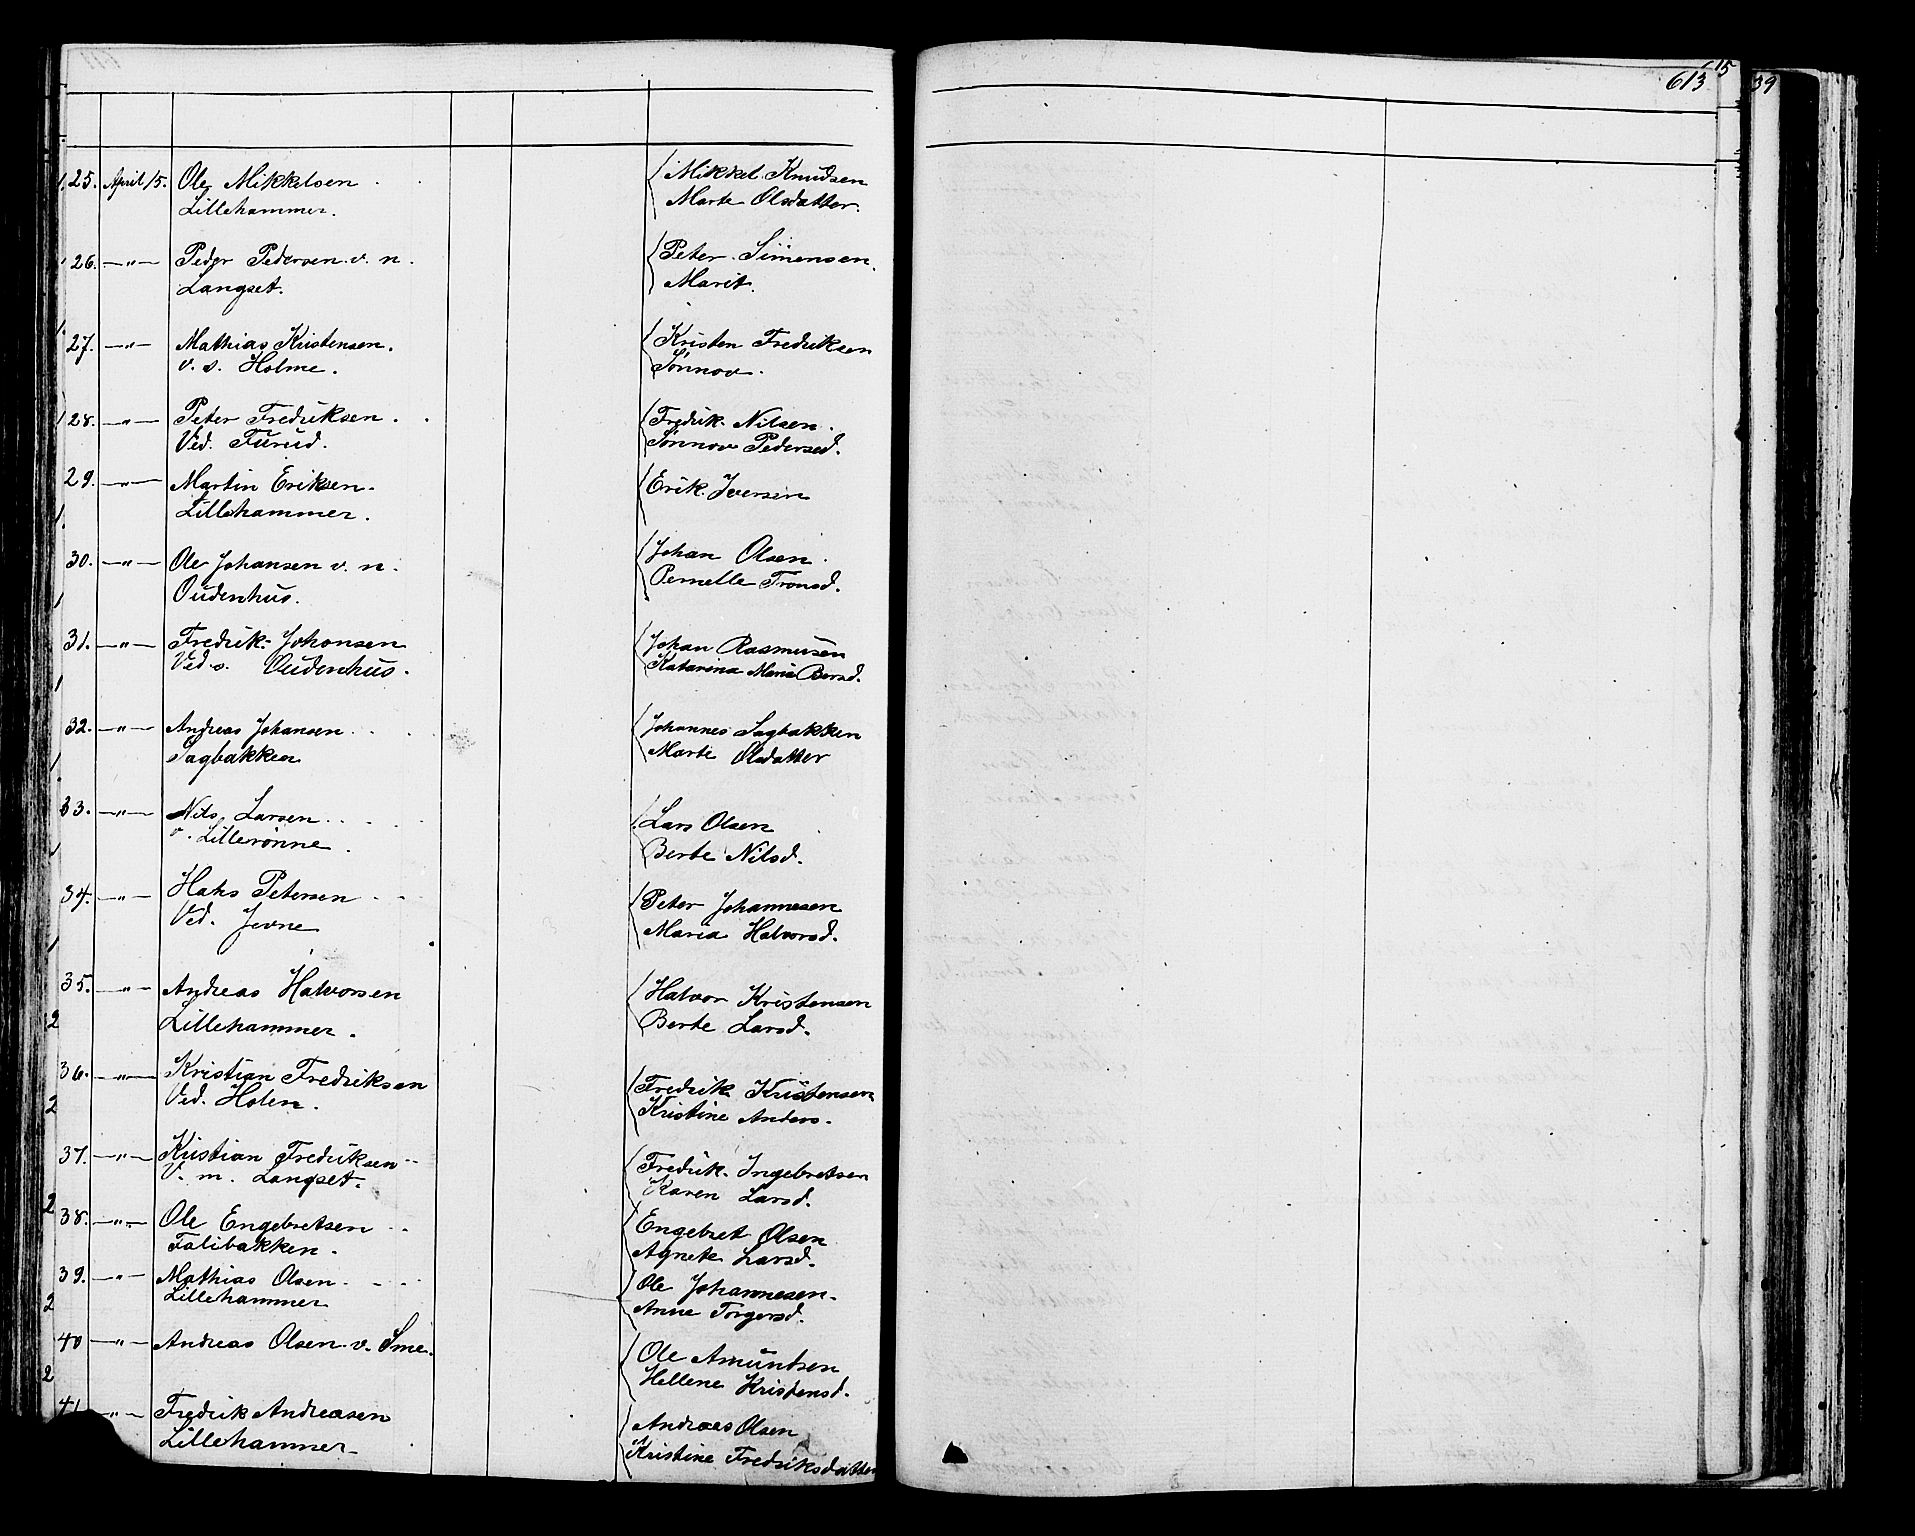 613
615
39
25. April 15. Ole Mikkelsen { Mikkel Knudsen
Lillehammer. Marte Olsdatter.
26. —"— Peder Pedersen v. n. { Peter Simensen.
Langset. Marit.
27. —"— Mathias Kristensen. { Kristen Fredriksen
v. s. Holme. Sønnov.
28. —"— Peter Fredriksen. { Fredrik Nilsen.
Ved. Furud. Sønnov Pedersd.
29. —"— Martin Eriksen. { Erik Iversen
Lillehammer.
30. —"— Ole Johansen v. n. { Johan Olsen.
Oudenhus. Pernelle Tronsd.
31. —"— Fredrik Johansen { Johan Rasmusen
Ved s. Oudenhus. Katarina Maria Bersd.
32. —"— Andreas Johansen { Johannes Sagbakken
Sagbakken Marte Olsdatter
33. —"— Nils Larsen { Lars Olsen
v. Lillerønne. Berte Nilsd.
34. —"— Hans Petersen { Peter Johannesen
Ved. Jevne Maria Halvorsd.
35. —"— Andreas Halvorsen { Halvor Kristensen
Lillehammer. Berte Larsd.
36. —"— Kristian Fredriksen { Fredrik Kristensen
Ved. Holen. Kristine Anders.
37. —"— Kristian Fredriksen { Fredrik Ingebretsen
V. m. Langset. Karen Larsd.
38. —"— Ole Engebretsen { Engebret Olsen
Falibakken. Agnete Larsd.
39. —"— Mathias Olsen. { Ole Johannesen.
Lillehammer Anne Torgersd.
40 —"— Andreas Olsen v. Sme. { Ole Amundsen
Hellene Kristensd.
41 —"— Fredrik Andreasen { Andreas Olsen
Lillehammer Kristine Fredriksdatter